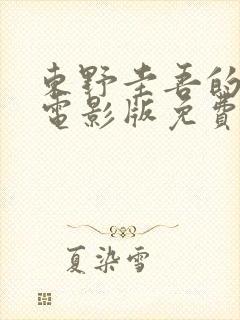 東野圭吾的
電影版免費
夏染雪